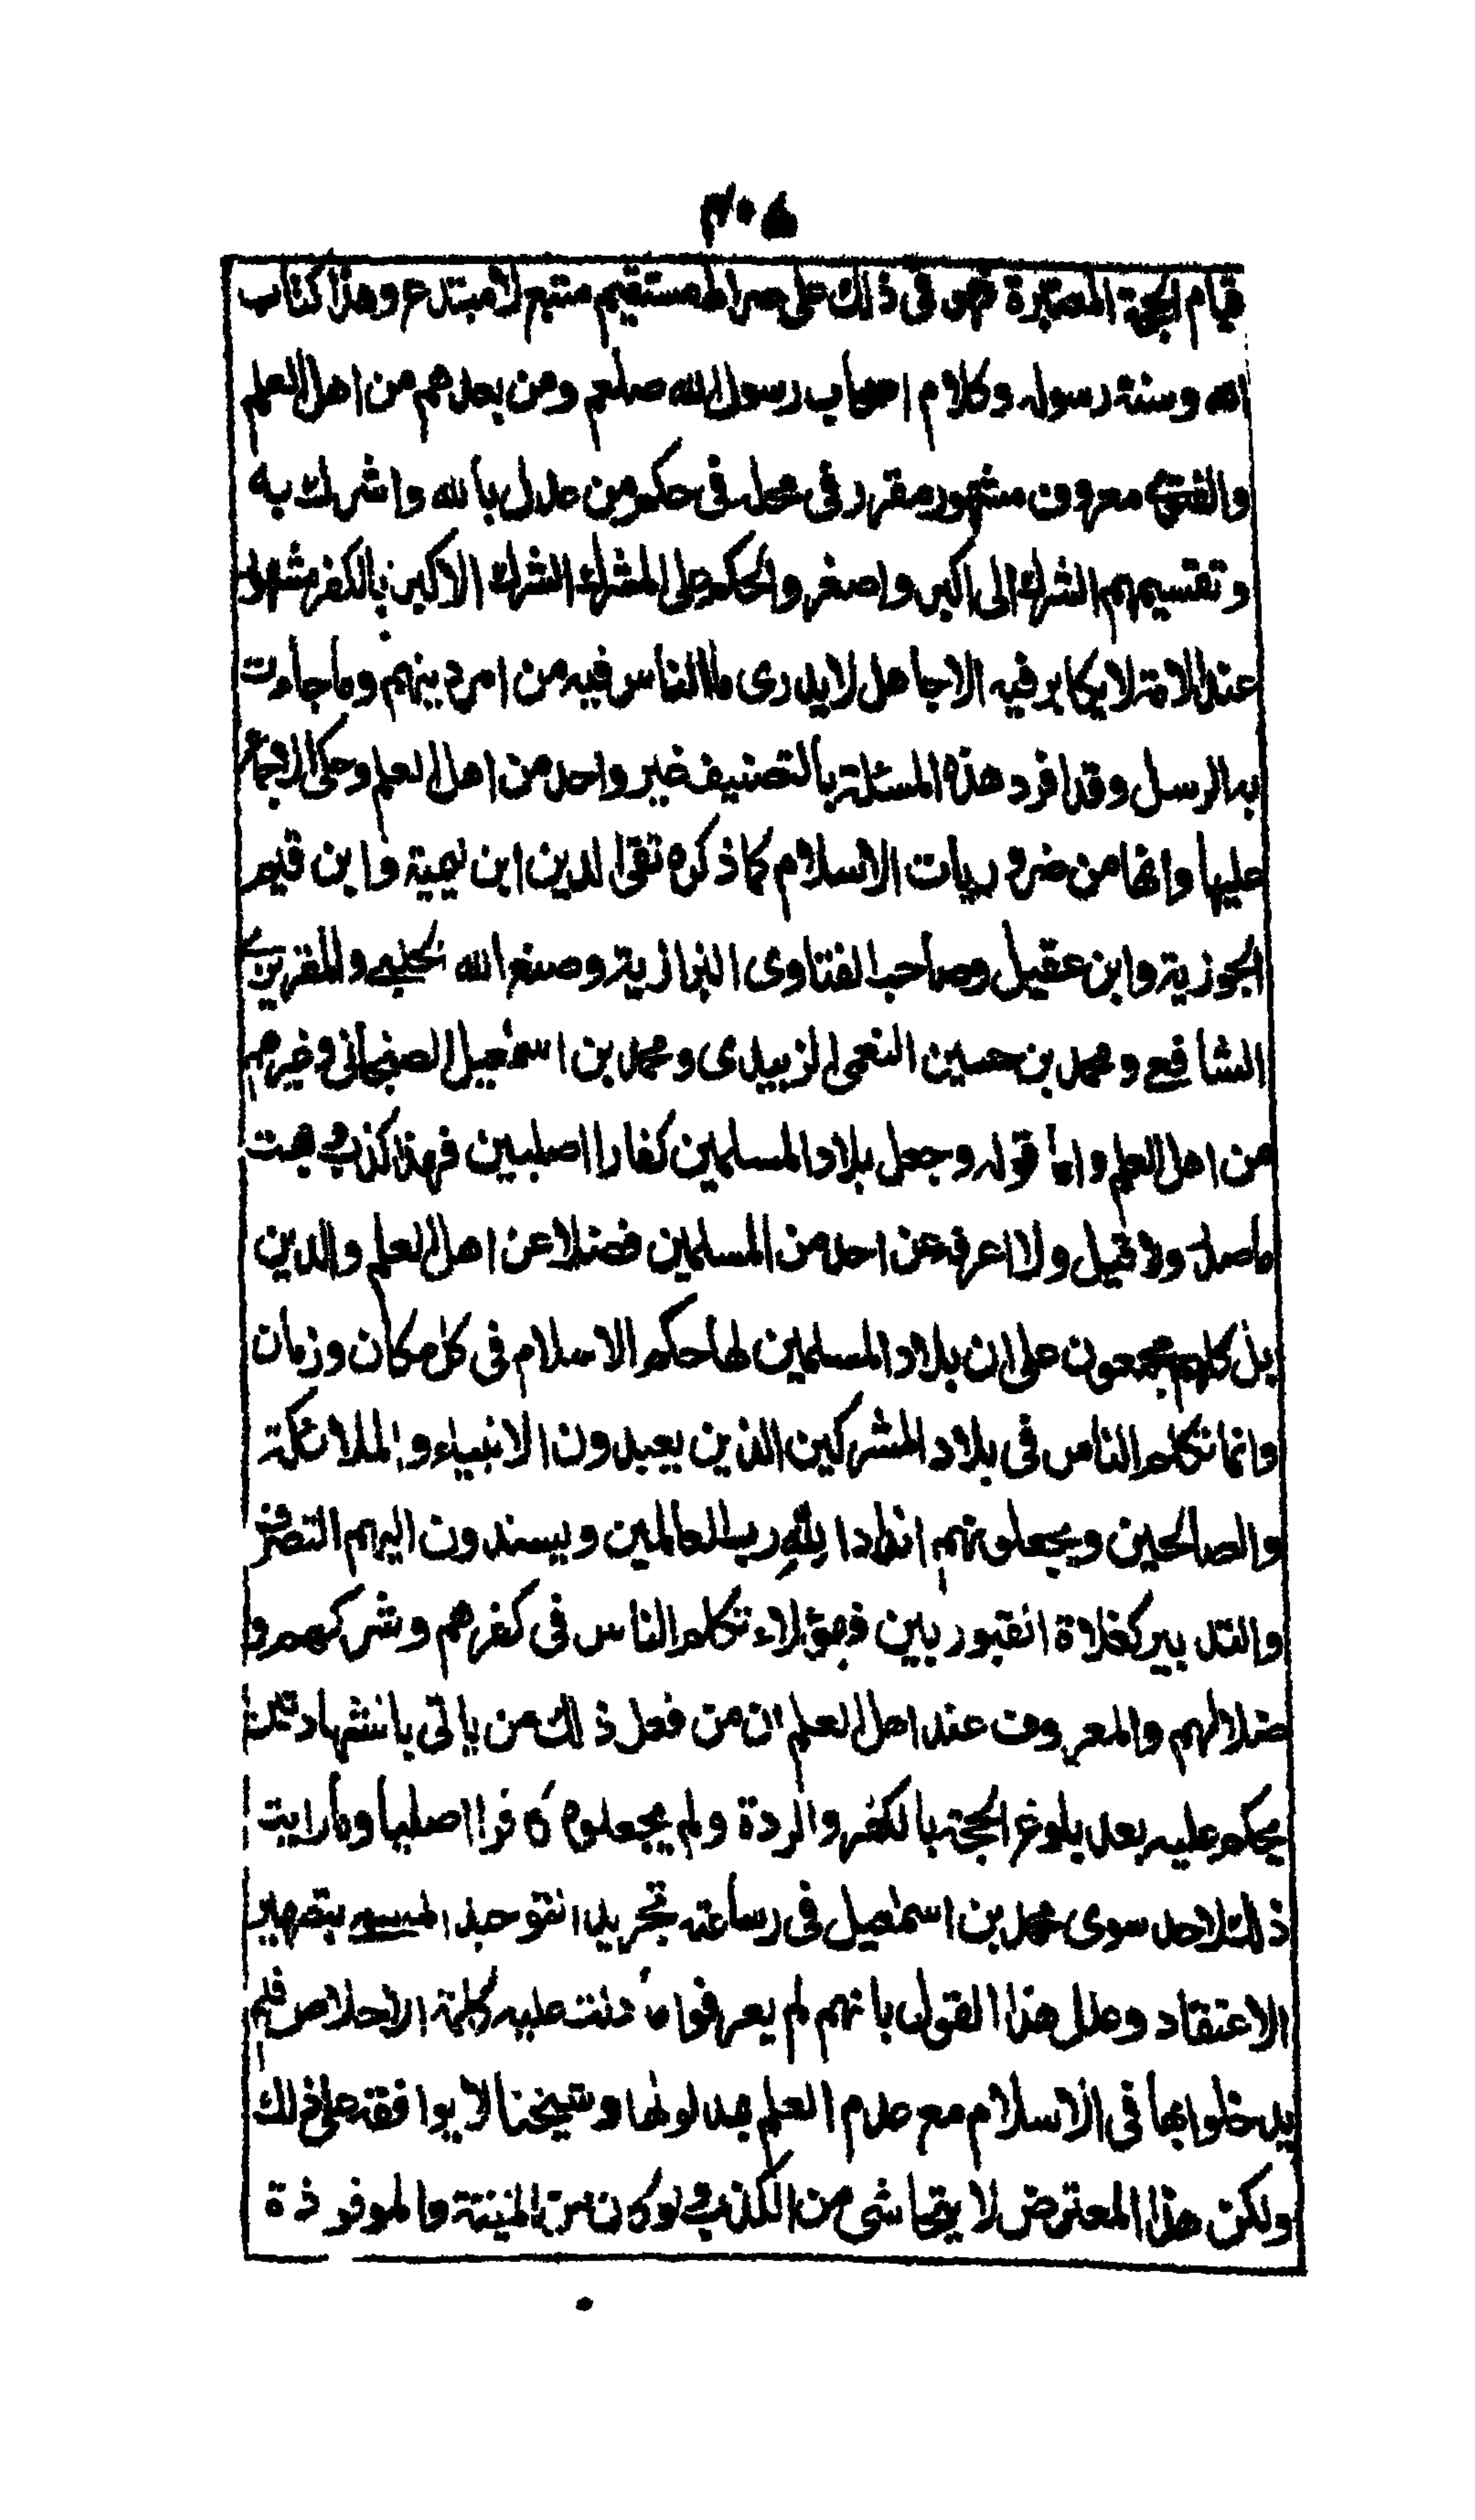 ٣٠٥
قيام الحجة المعتبرة فهو فى ذلك على صراط مستقيم متبع لا مبتدع وهذا كتاب
الله وسنة رسوله وكلام اصحاب رسول الله صلعم ومن بعدهم من اهل العلم
والفتوى معروف مشهور مقرر فى محله فى حكم من عدل بالله واشرك به
وتقسيمهم الشرك الى اكبر واصغر والحكم على المشرك الشرك الاكبر بالكفر مشهور
عند الامة لا يكابر فيه الا جاهل لا يدرى ما الناس فيه من امر دينهم وما جاءت
به الرسل وقد افرد هذه المسئلة بالتصنيف غير واحد من اهل العلم وحكى الاجماع
عليها وانها من ضروريات الاسلام كما ذكره تقى الدين ابن تيمية وابن قيم
الجوزية وابن عقيل وصاحب الفتاوى البزازية وصنع الله الحلبى والمقريزى
الشافعى ومحمد بن حسين النعمى الزبيدى ومحمد بن اسمعيل الصنعانى وغيرهم
من اهل العلم واما قوله وجعل بلاد المسلمين كفارا اصليين فهذا كذب وبهت
ما صدر ولا قيل ولا اعرفه عن احد من المسلمين فضلا عن اهل العلم والدين
بل كلهم مجمعون على ان بلاد المسلمين لها حكم الاسلام فى كل مكان وزمان
وانما تكلم الناس فى بلاد المشركين الذين يعبدون الانبياء والملائكة
والصالحين ويجعلونهم اندادا لله رب العالمين ويسندون اليهم التصرف
والتدبير كغلاة القبوريين فهؤلاء تكلم الناس فى كفرهم وشركهم و
ضلالهم والمعروف عند اهل العلم ان من فعل ذلك ممن يأتى بالشهادتين
يحكم عليه بعد بلوغ الحجة بالكفر والردة ولم يجعلوه كافرا اصليا وما رايت
ذلك لاحد سوى محمد بن اسمعيل فى رسالته تجريد التوحيد المسمى بتطهير
الاعتقاد وعلل هذا القول بانهم لم يعرفوا ما دلت عليه كلمة الاخلاص فلم
يدخلوا بها فى الاسلام مع عدم العلم بمدلولها وشيخنا لا يوافقه على ذلك
ولكن هذا المعترض لا يتحاشى من الكذب ولو كان من الميتة والموقوذة